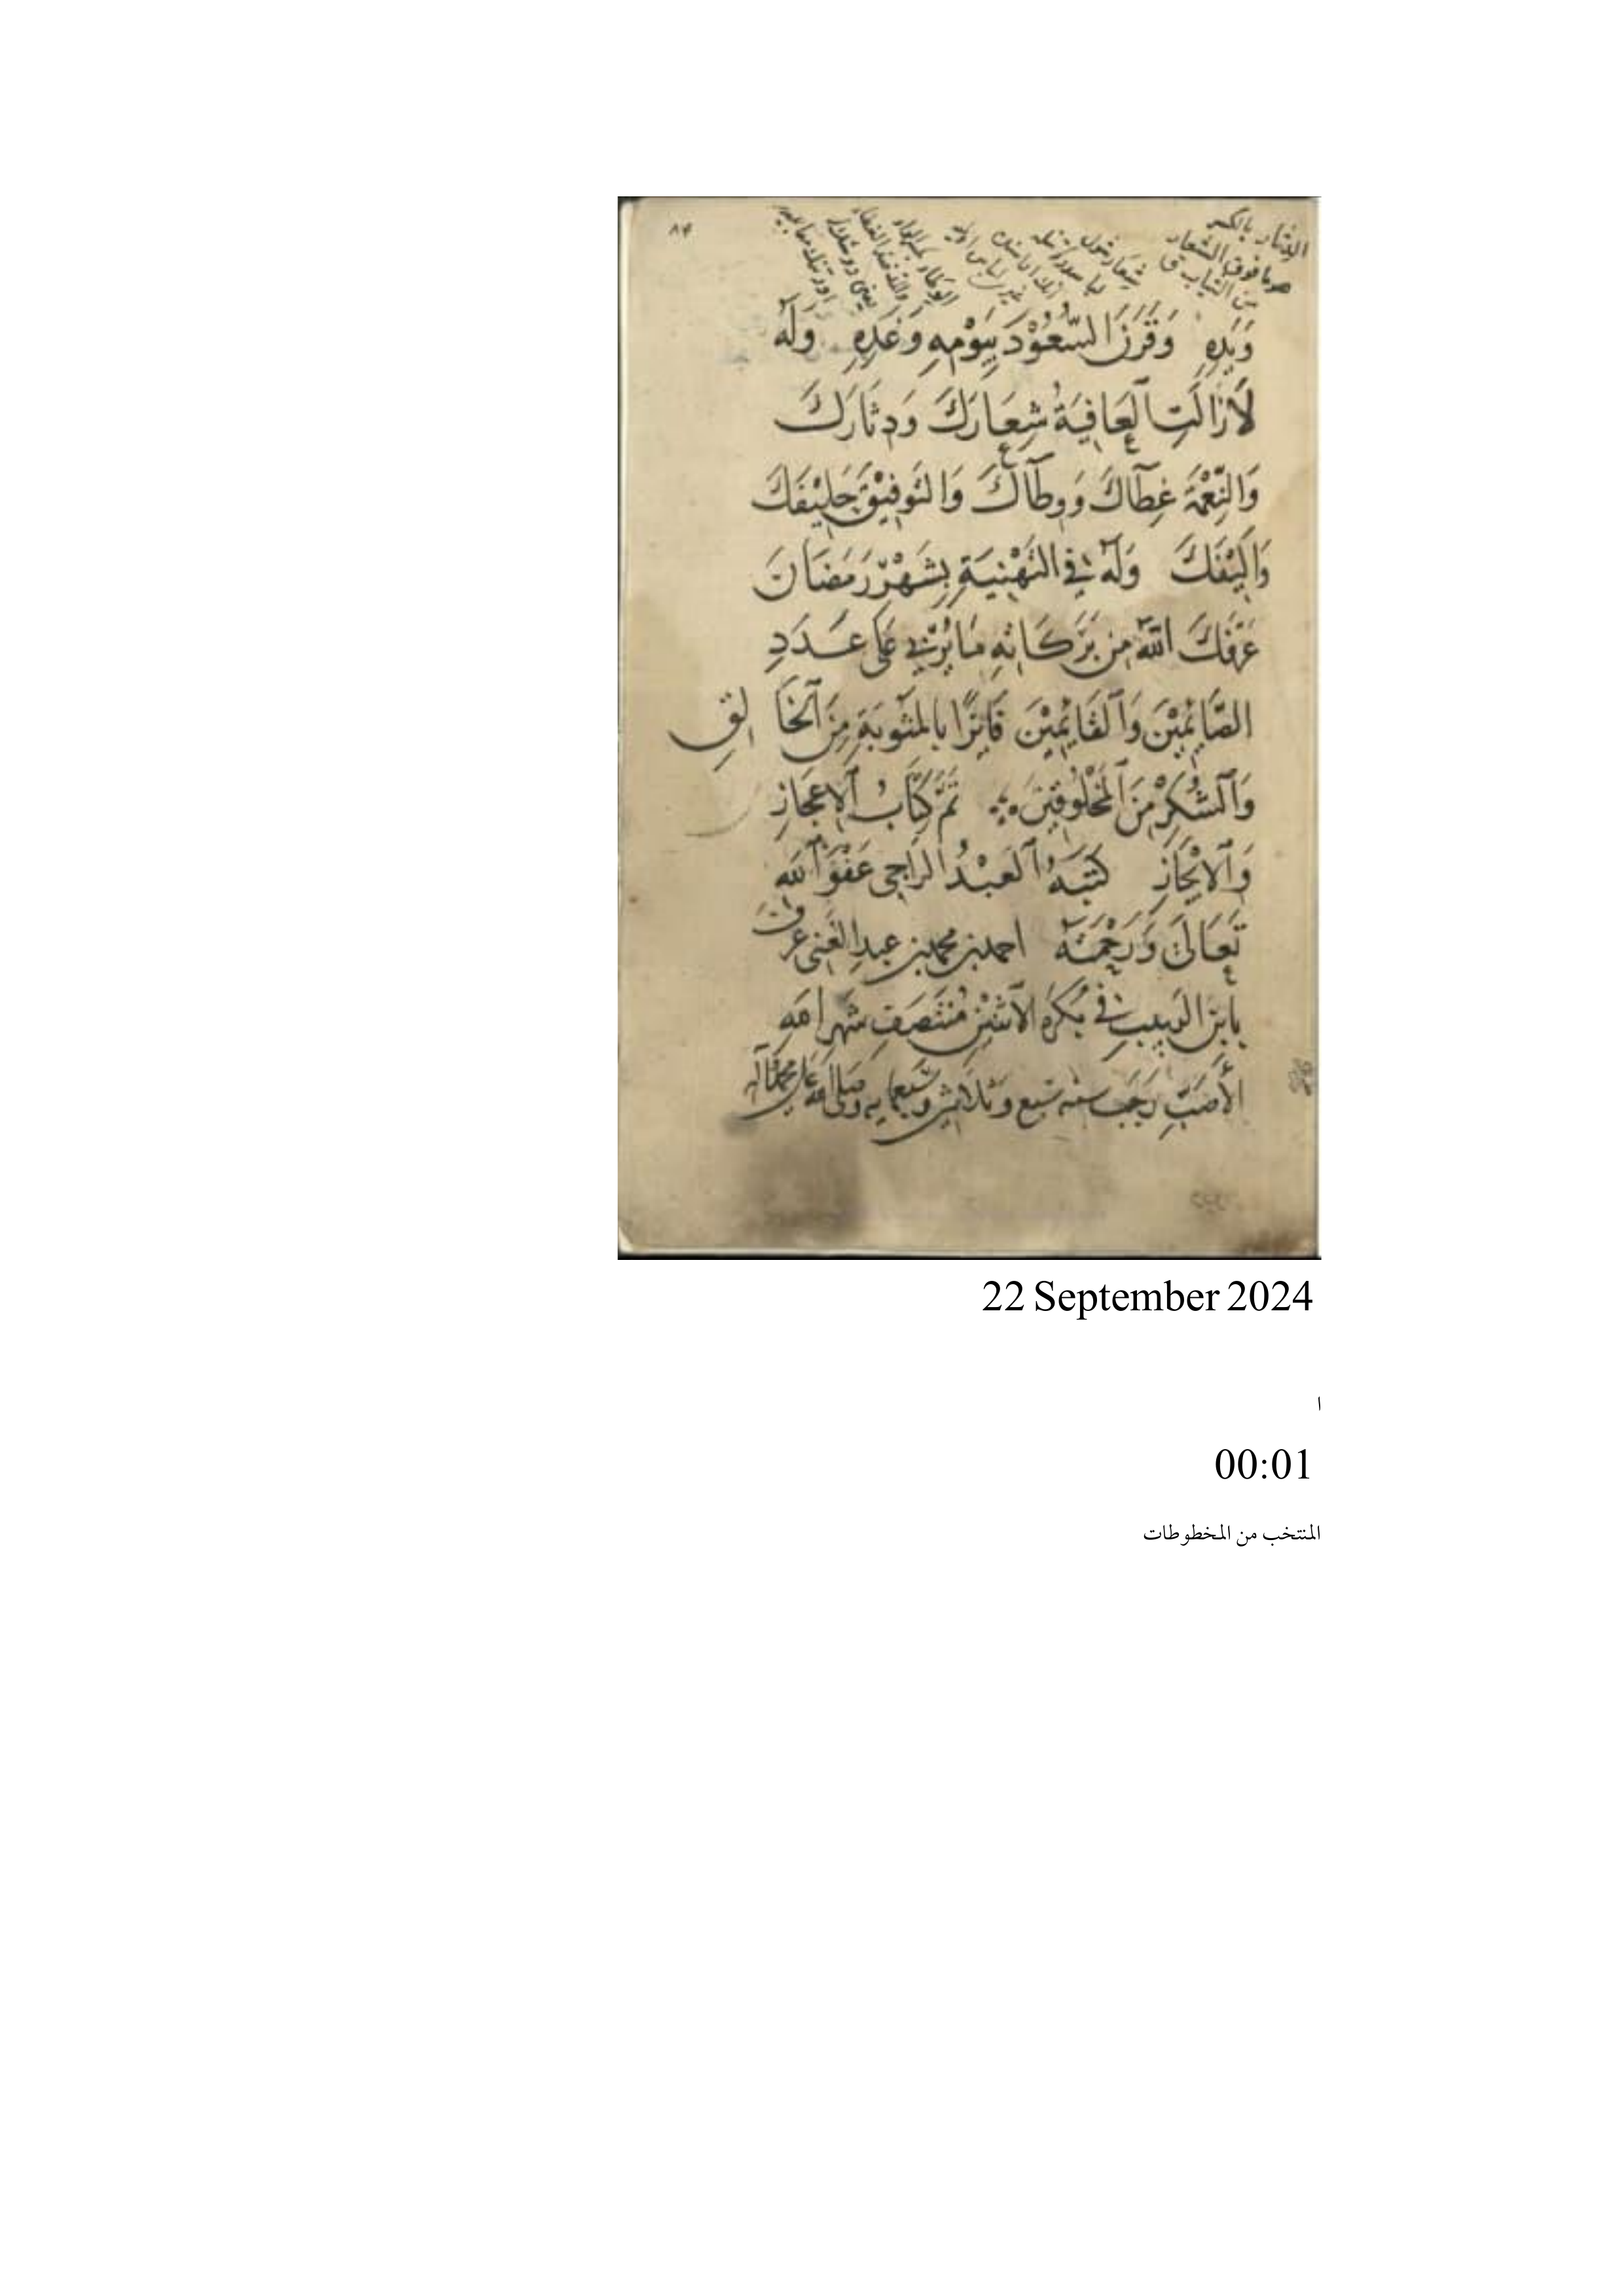 ٨٤
الدثار بالكسر
هو ما فوق الشعار
من الثياب ق
وَيَدِهِ وَقَرَنَ السُّعُوْدَ بِيَوْمِهِ وَغَدِهِ وَلَهُ
لَازَالَتِ الْعَافِيَةُ شِعَارَكَ وَدِثَارَكَ
وَالنِّعْمَةُ غِطَآكَ وَوِطَآكَ وَالتَّوفِيْقُ حَلِيْفَكَ
وَاَلِيْفَكَ وَلَهُ فِي التَّهْنِيَةِ بِشَهْرِ رَمَضَانَ
عَرَّفَكَ اللّٰهُ مِن بَرَكَاتِهِ مَا يُرْبِي عَلَى عَدَدِ
الصَّايِمِيْنَ وَالْقَايِمِيْنَ فَايِزًا بِالْمَثُوبَةِ مِنَ الْخَالِقِ
وَالشُّكْرِ مِنَ الْمَخْلُوقِيْنَ تَمَّ كِتَابُ الاِعْجَازِ
وَالاِيْجَازِ كَتَبَهُ الْعَبْدُ الرَّاجِي عَفْوَ اللّٰهِ
تَعَالَى وَرَحْمَتَهُ احمد بن محمد بن عبد الغنى عرف
بابن اللبيب في بكرة الاثنين مُنْتَصَفِ شهر الله
الأَصَبِّ رَجَب سنه سبع وثلاثين وسبعمايه وصلى الله على محمد وآله
22 September 2024
ا
00:01
المنتخب من المخطوطات